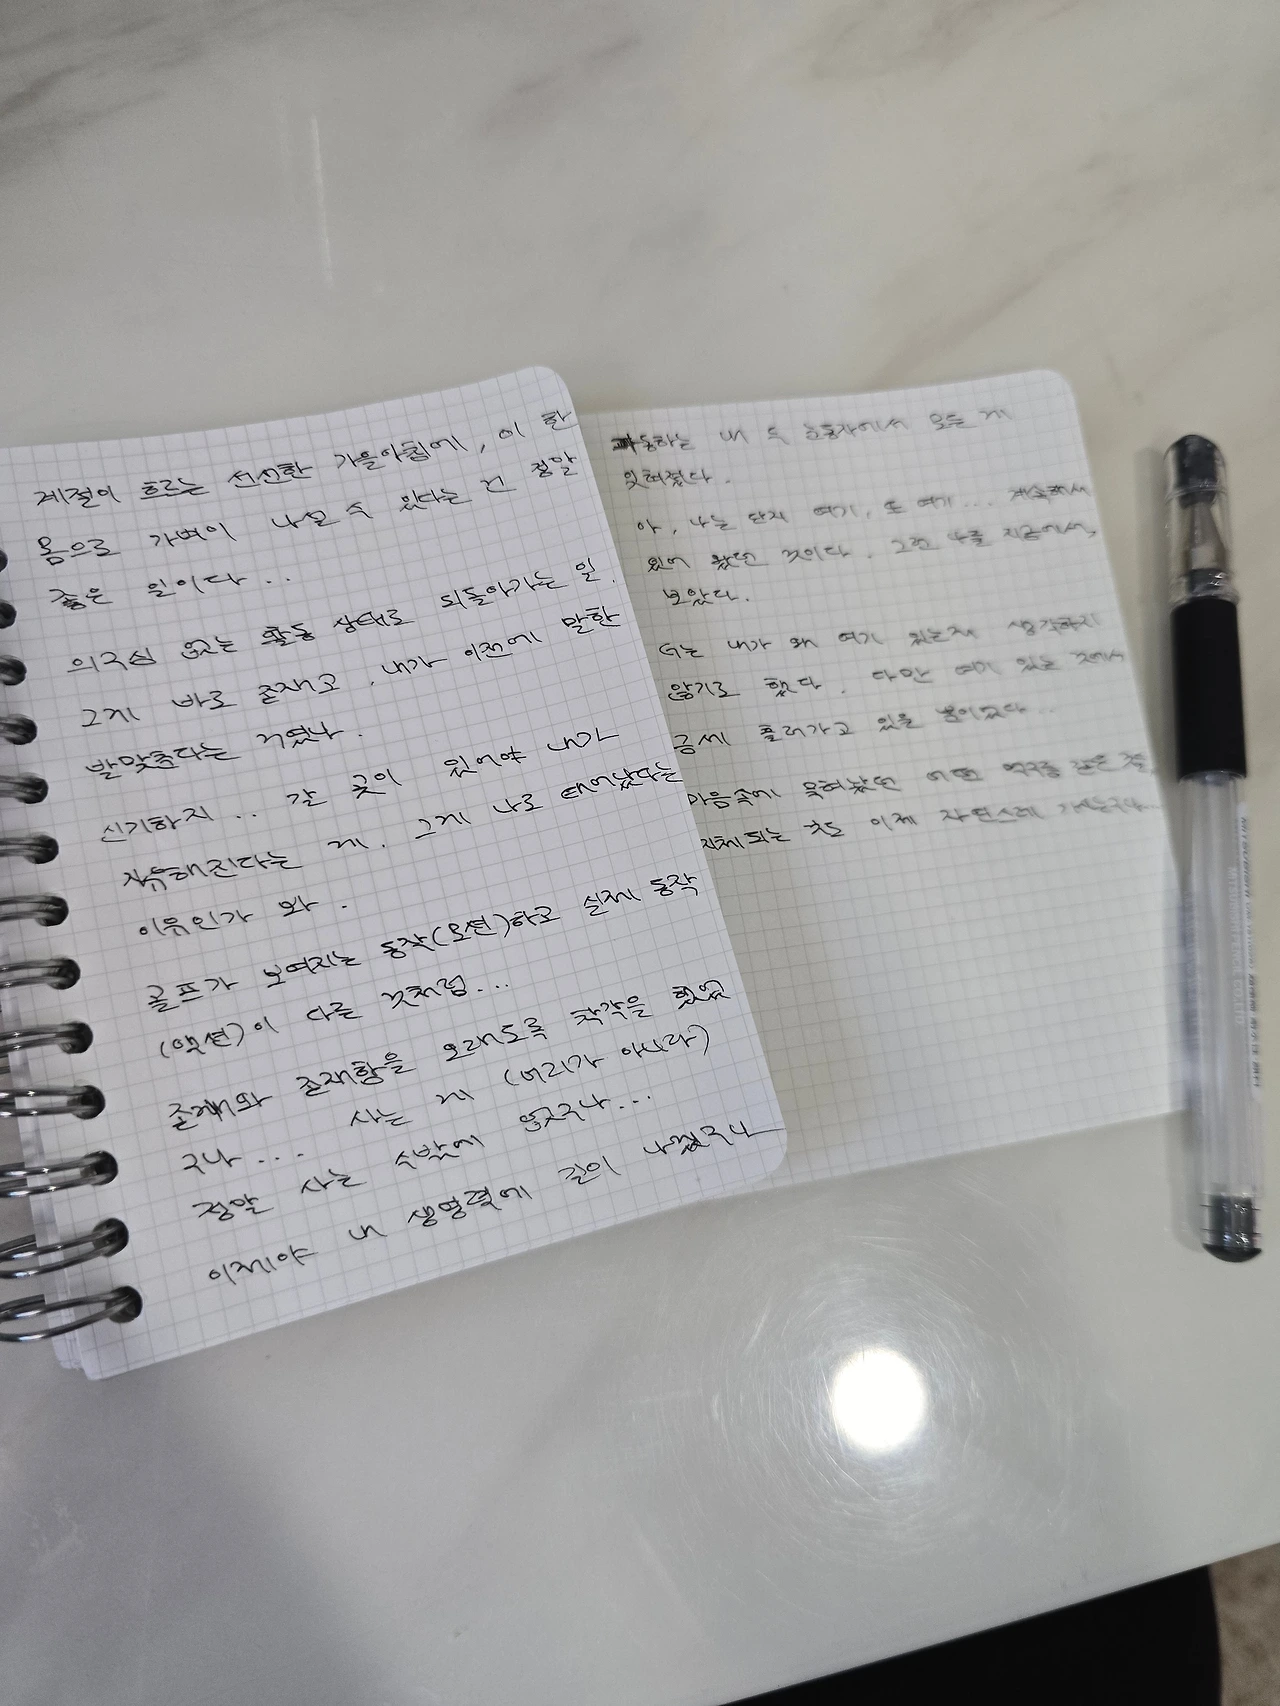 계절이 흐르는 선선한 가을아침에, 이 한
몸으로 가벼이 나올 수 있다는 건 정말
좋은 일이다...
의구심 없는 활동 상태로 되돌아가는 일.
그게 바로 존재고. 내가 이전에 말한
발맞춘다는 거였나.
신기하지.. 갈 곳이 있어야 내가
자유해진다는 게. 그게 나로 태어났다는
이유인가 봐.
골프가 보여지는 동작(모션)하고 실제 동작
(액션)이 다른 것처럼...
존재와 존재함을 오래도록 착각을 했었
구나... 사는 게 (머리가 아니라)
정말 사는 수밖에 없구나...
이제야 내 생명력에 길이 나겠구나
내 두 눈동자에서 모든 게
잊혀졌다.
아, 나는 단지 여기, 또 여기... 계속해서
있어 왔던 것이다. 그런 나를 지금에서,
보았다.
너는 내가 왜 여기 있는지 생각하지
않기로 했다. 다만 여기 있는 것에서
금세 흘러가고 있을 뿐이었다...
마음속에 묵혀놨던 어떤 같은 것,
지체되는 것도 이제 자연스레